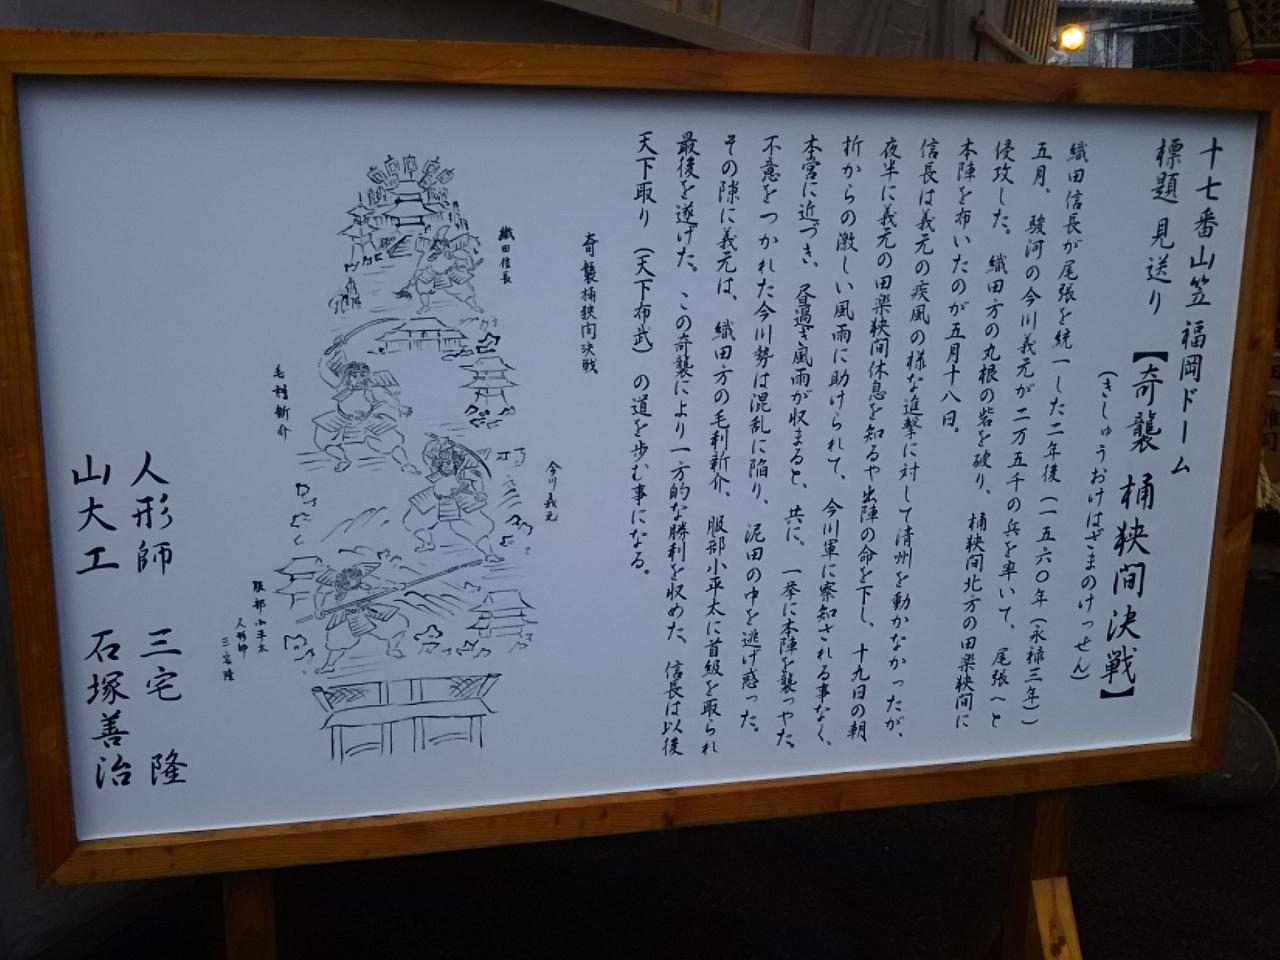 十七番山笠 福岡ドーム
標題 見送り 【奇襲 桶狭間決戦】
(きしゅうおけはざまのけっせん)
織田信長が尾張を統一した二年後(一五六〇年(永禄三年))
五月、駿河の今川義元が二万五千の兵を率いて、尾張へと
侵攻した。織田方の丸根の砦を破り、桶狭間北方の田楽狭間に
本陣を布いたのが五月十八日。
信長は義元の疾風の様な進撃に対して清州を動かなかったが、
夜半に義元の田楽狭間休息を知るや出陣の命を下し、十九日の朝
折からの激しい風雨に助けられて、今川軍に察知される事なく、
本営に近づき、昼過ぎ風雨が収まると、共に、一挙に本陣を襲った。
不意をつかれた今川勢は混乱に陥り、泥田の中を逃げ惑った。
その隙に義元は、織田方の毛利新介、服部小平太に首級を取られ
最後を遂げた。この奇襲により一方的な勝利を収めた、信長は以後
天下取り(天下布武)の道を歩む事になる。
奇襲桶狭間決戦
織田信長
今川義元
毛利新介
服部小平太
人形師
三宅隆
人形師 三宅 隆
山大工 石塚善治